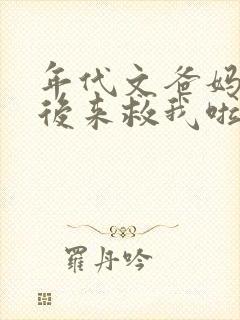 年代文爸妈
後来救我啦
羅丹吟